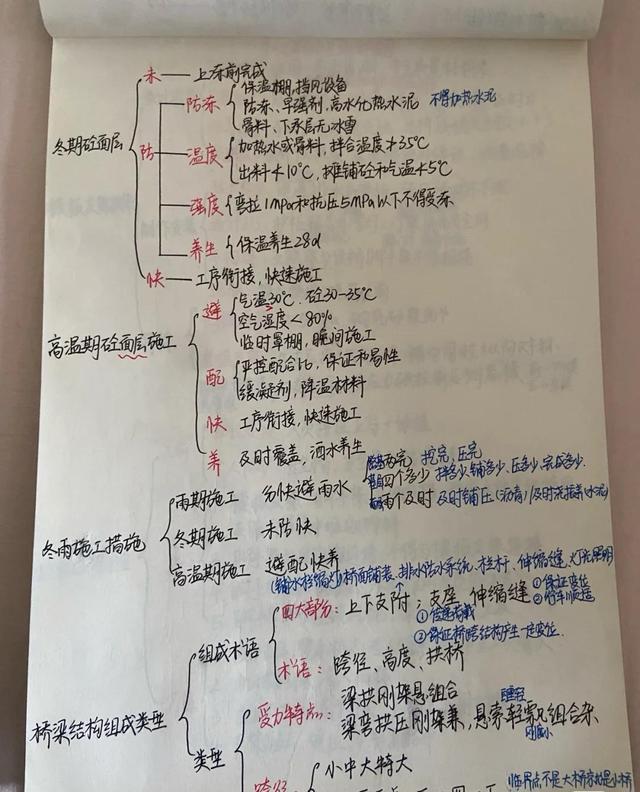 未 — 上冻前完成
保温棚,挡风设备
防冻 防冻、早强剂,高水化热水泥 不得加热水泥
骨料、下承层无冰雪
冬期砼面层 防 温度 加热水或骨料,拌合温度≯35℃
出料≮10℃,摊铺砼和气温≮5℃
强度 弯拉1mpa和抗压5mpa以下不得受冻
养生 保温养生28d
快 — 工序衔接,快速施工
避 气温30℃、砼30-35℃
空气湿度<80%
临时罩棚,晚间施工
高温期砼面层施工
配 严控配合比,保证和易性
缓凝剂,降温材料
快 工序衔接,快速施工
养 及时覆盖,洒水养生
两完 挖完,压完
雨期施工 分快避雨水 四个多少 拌多少铺多少、压多少、完成多少.
两个及时 及时铺压(沥青)及时浇振养(水泥)
冬雨施工措施 冬期施工 未防快
高温期施工 避配快养
(铺水栏缩灯)桥面铺装、排水防水系统、栏杆、伸缩缝、灯光照明
四大部分:上下支附;支座 伸缩缝 ①保证变位 ②行车顺适
①传递荷载
组成术语 ②保证桥跨结构产生一定变位.
术语:跨径、高度、拱桥
桥梁结构组成类型
受力特点: 梁拱刚架悬组合
梁弯拱压刚架兼,悬索轻 组合杂
刚度小
类型
跨径 小中大特大
临界点不是大桥就是小桥